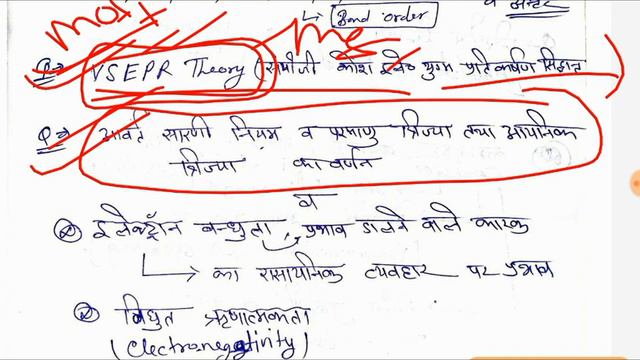 Bond order
व अन्तर
most
Imp
Q⇒ VSEPR Theory (संयोजी कोश इले० युग्म प्रतिकर्षण सिद्धान्त)
Q⇒ आवर्त सारणी नियम व परमाणु त्रिज्या तथा आयनिक
त्रिज्या का वर्णन
य
इलेक्ट्रॉन बन्धुता → प्रभाव डालने वाले कारक
का रासायनिक व्यवहार पर प्रभाव
विधुत ऋणात्मकता
(electronegativity)